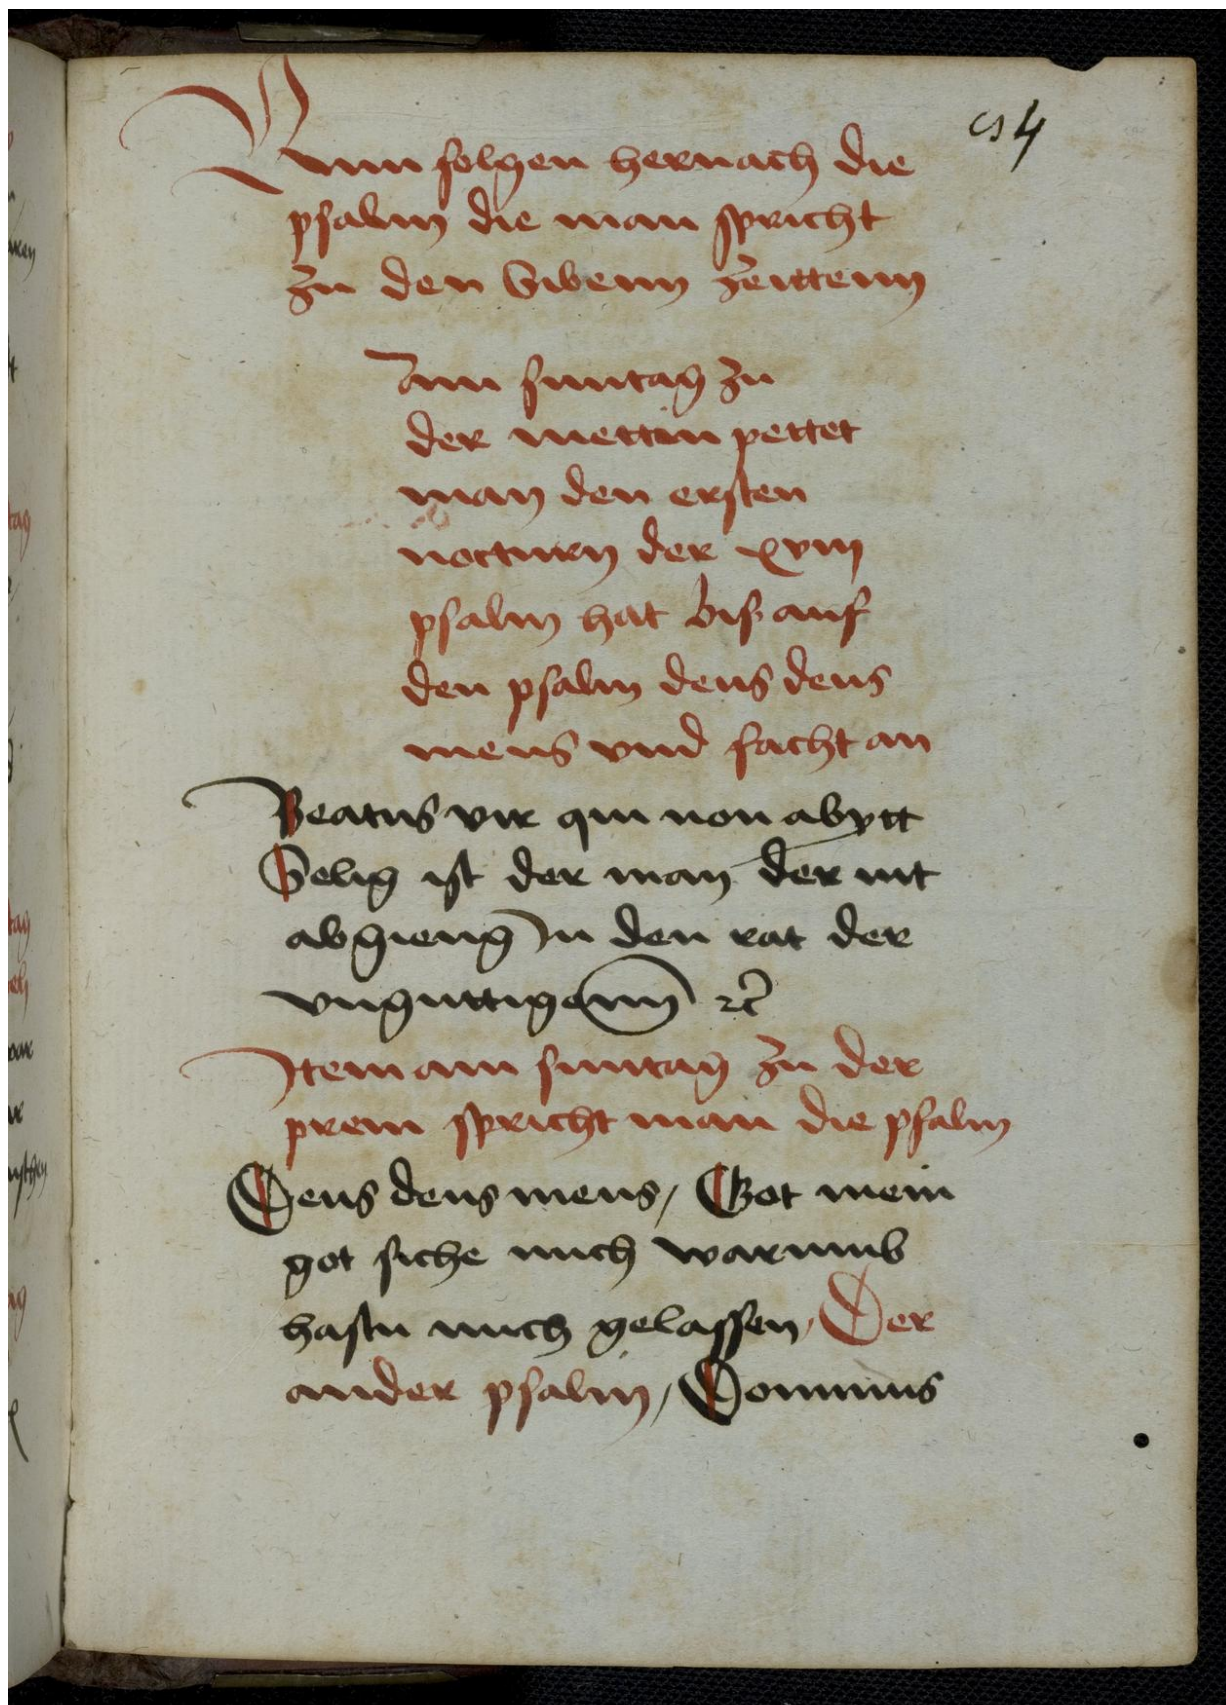 Nunn folgen hernach die
psalm die man spricht
zu den Sibenn zeittenn
Ann suntag zu
der mettin pettet
man den ersten
nocturn der xviij
psalm hat bis auf
den psalm deus deus
meus vnd facht an
Beatus vir qui non abytt
Selig ist der man der nit
abgieng In den rat der
vnguttigenn etc
Item am suntag zu der
prem spricht man die psalm
Deus deus meus / Got mein
got siche mich warumb
hastu mich gelassen / Der
ander psalm / Dominus